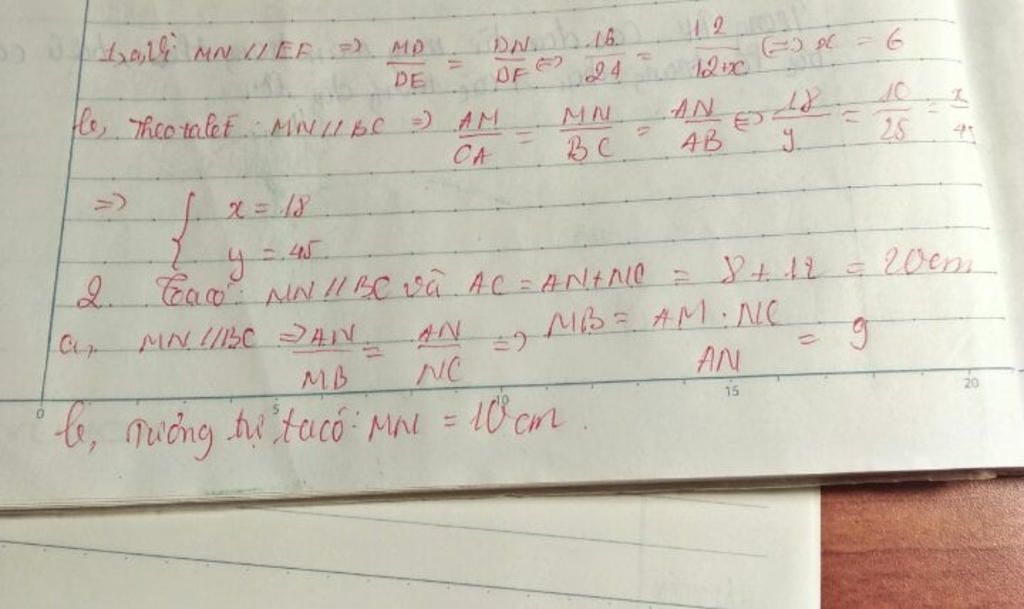 1, a, Vì MN // EF => MD/DE = DN/DF <=> 16/24 = 12/12+x <=> x = 6
b, Theo talet: MN // BC => AM/CA = MN/BC = AN/AB <=> 18/y = 10/25 = x/45
=> { x = 18
y = 45
2. Ta có: MN // BC và AC = AN + NC = 8 + 12 = 20 cm
a, MN // BC => AN/MB = AN/NC => MB = AM . NC/AN = 9
0 5 10 15 20
b, Tưởng tự ta có: MN = 10 cm.